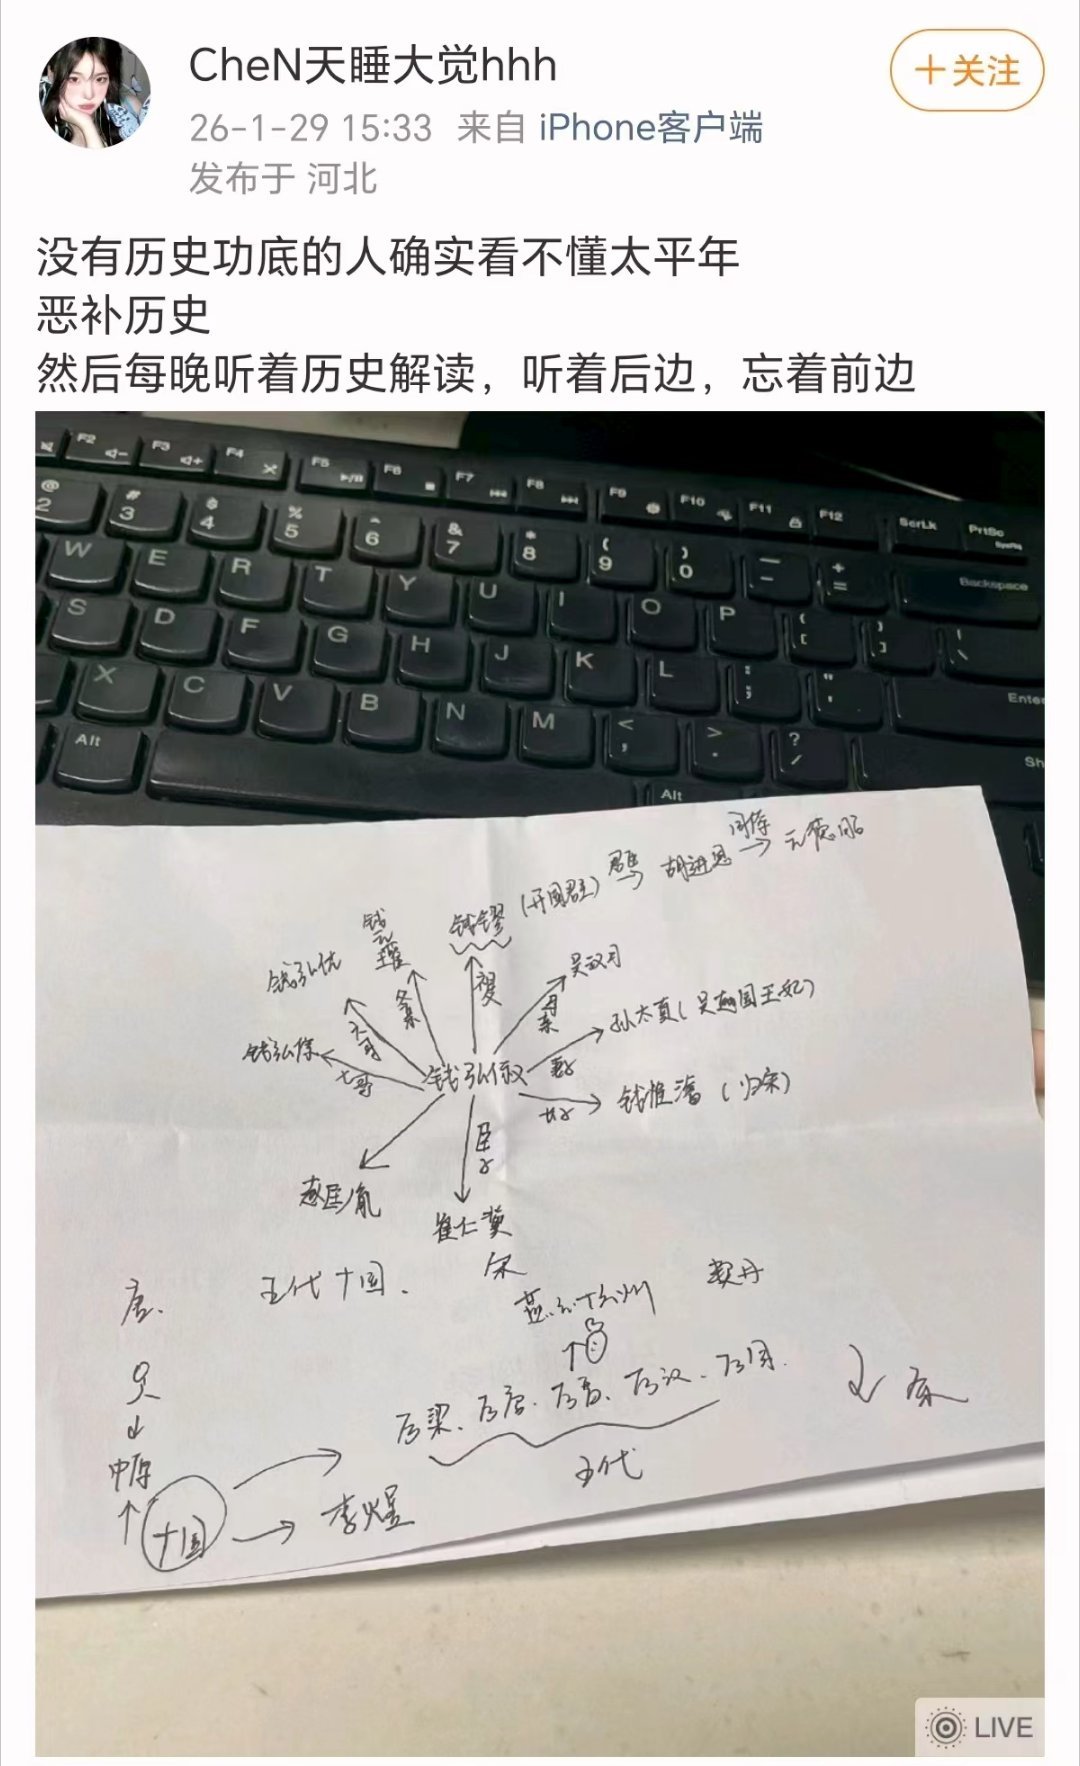 CheN天睡大觉hhh
+关注
26-1-29 15:33 来自 iPhone客户端
发布于 河北
没有历史功底的人确实看不懂太平年
恶补历史
然后每晚听着历史解读，听着后边，忘着前边
F2 F3 F4 F5 F6 F7 F8 F9 F10 F11 F12 ScrLk PrtSc
SysRq
@ 2 # 3 $ 4 % 5 ^ 6 & 7 * 8 ( 9 ) 0 _ - + = Backspace
W E R T Y U I O P { [ } ] | \
S D F G H J K L : ; " ' Enter
X C V B N M < , > . ? / Sh
Alt Alt
钱镠（开国君主） 胡进思 元德昭
钱元瓘
钱弘佐
吴汉月
母亲
孙太真（吴越国王妃）
妻子
钱弘倧
七哥
钱弘俶
钱惟濬（归宋）
臣子
赵匡胤
崔仁冀
唐. 五代十国. 宋
燕云十六州 契丹
后梁、后唐、后晋、后汉、后周.
五代
中原
十国
李煜
LIVE